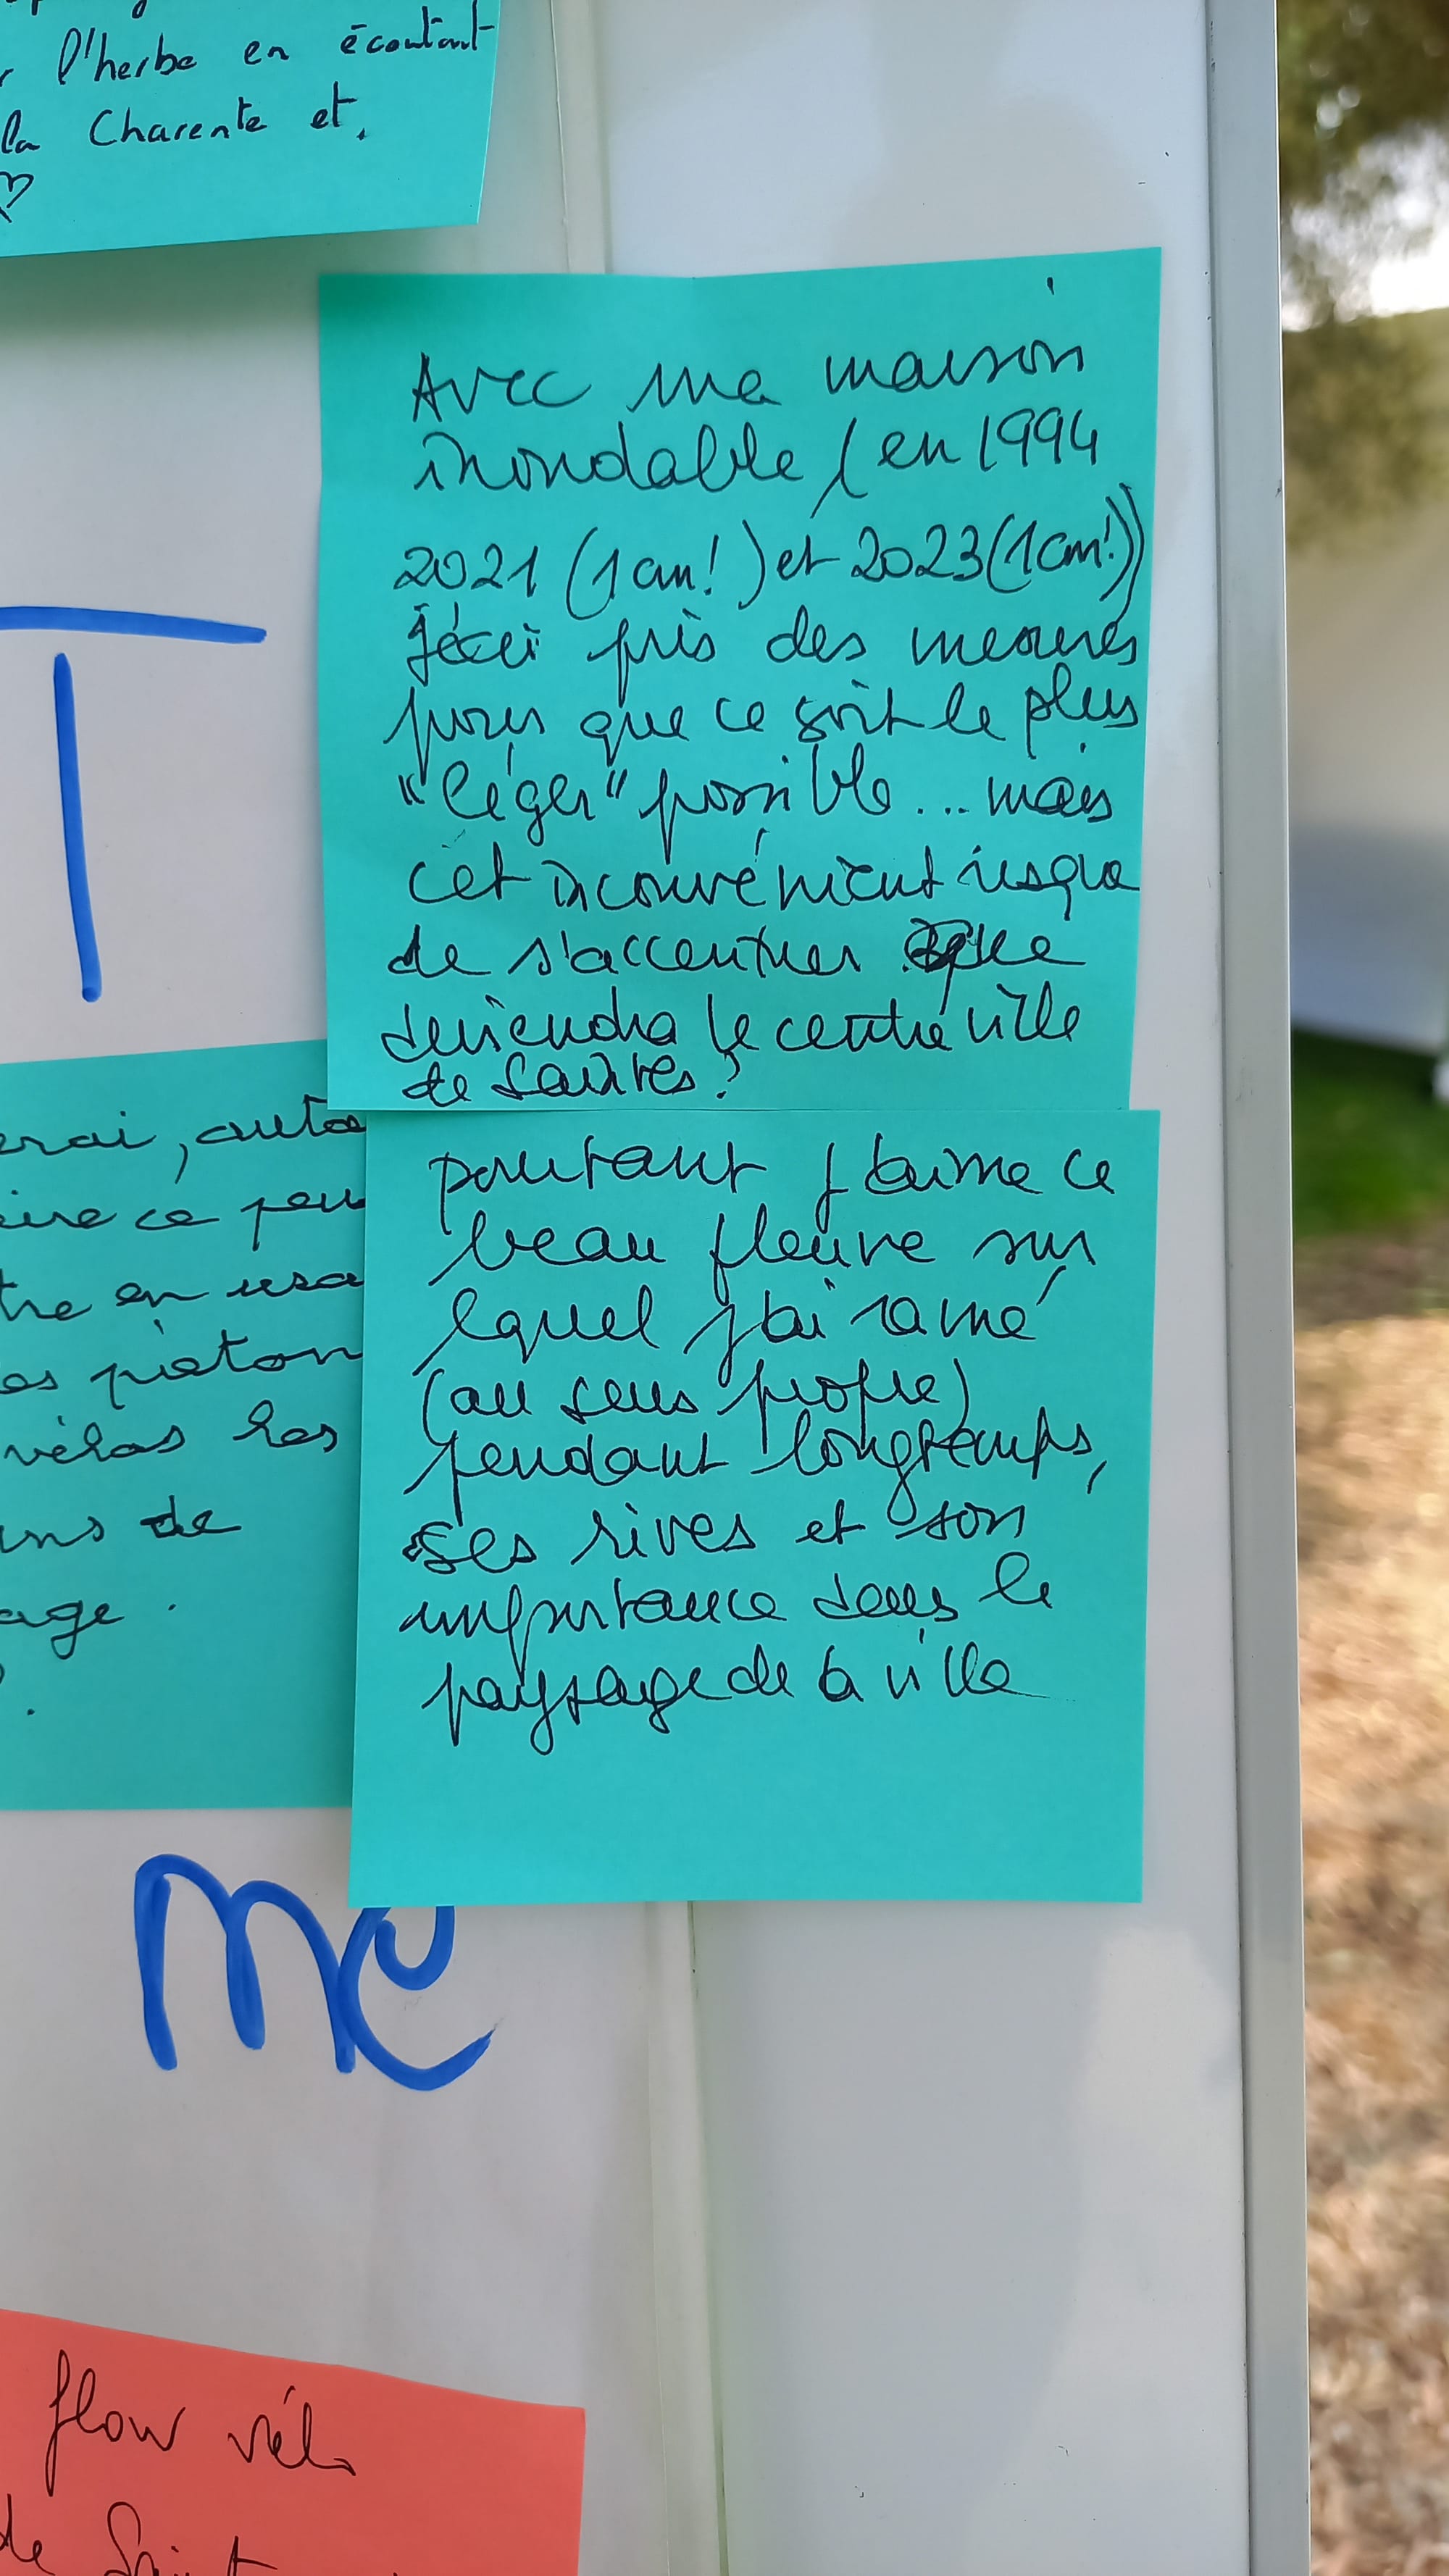 l'herbe en écoutant
la Charente et,
Avec ma maison
inondable (en 1994
2021 (1 cm!) et 2023 (1cm!))
j'ai pris des mesures
pour que ce soit le plus
"léger" possible... mais
cet inconvénient risque
de s'accentuer que
deviendra le centre ville
de Saintes?
erai, auto
ire ce peu
tre en usa
es piéton
vélos les
ans de
age.
pourtant j'aime ce
beau fleuve sur
lequel j'ai ramé
(au sens propre)
pendant longtemps,
ses rives et son
importance dans le
paysage de la ville
T
flow vélo
de Saint